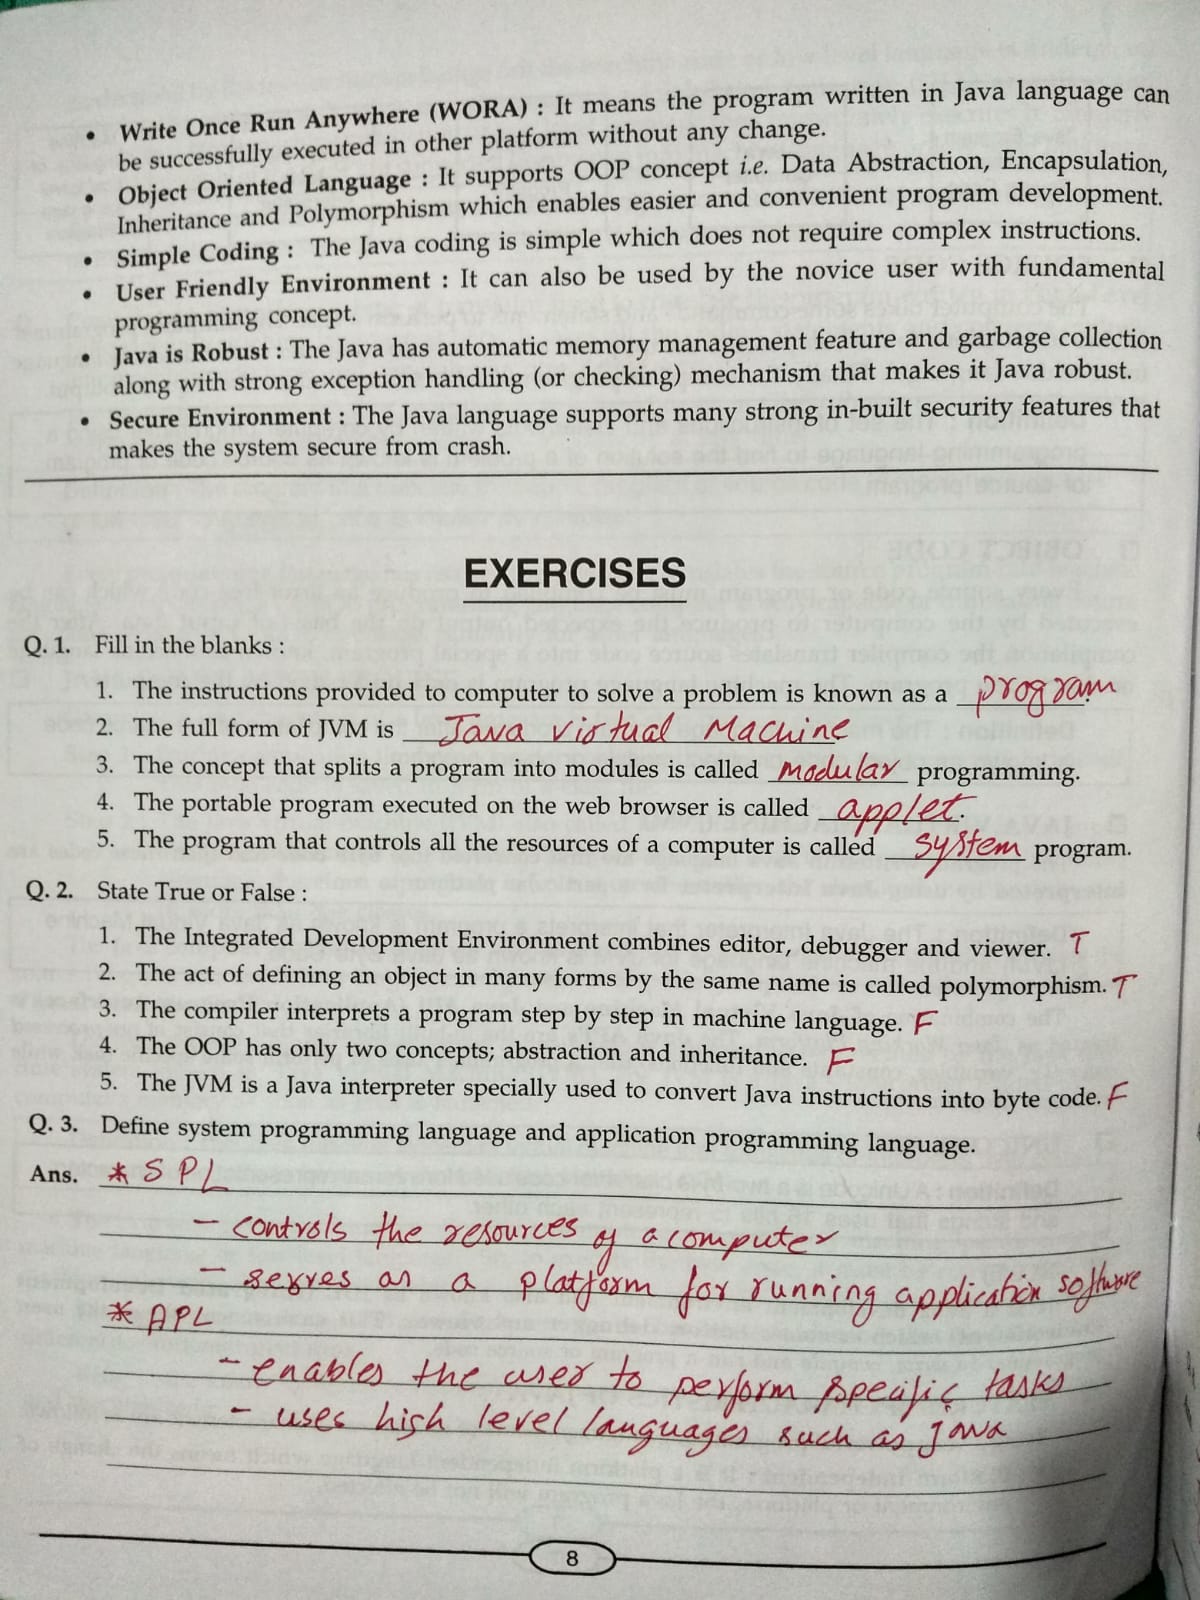 • Write Once Run Anywhere (WORA) : It means the program written in Java language can
be successfully executed in other platform without any change.
• Object Oriented Language : It supports OOP concept i.e. Data Abstraction, Encapsulation,
Inheritance and Polymorphism which enables easier and convenient program development.
• Simple Coding : The Java coding is simple which does not require complex instructions.
• User Friendly Environment : It can also be used by the novice user with fundamental
programming concept.
• Java is Robust : The Java has automatic memory management feature and garbage collection
along with strong exception handling (or checking) mechanism that makes it Java robust.
• Secure Environment : The Java language supports many strong in-built security features that
makes the system secure from crash.
EXERCISES
Q. 1. Fill in the blanks :
1. The instructions provided to computer to solve a problem is known as a program.
2. The full form of JVM is Java virtual Machine
3. The concept that splits a program into modules is called modular programming.
4. The portable program executed on the web browser is called applet.
5. The program that controls all the resources of a computer is called system program.
Q. 2. State True or False :
1. The Integrated Development Environment combines editor, debugger and viewer. T
2. The act of defining an object in many forms by the same name is called polymorphism. T
3. The compiler interprets a program step by step in machine language. F
4. The OOP has only two concepts; abstraction and inheritance. F
5. The JVM is a Java interpreter specially used to convert Java instructions into byte code. F
Q. 3. Define system programming language and application programming language.
Ans. * SPL
- controls the resources of a computer
- serves as a platform for running application software
* APL
- enables the user to perform specific tasks
- uses high level languages such as java
8